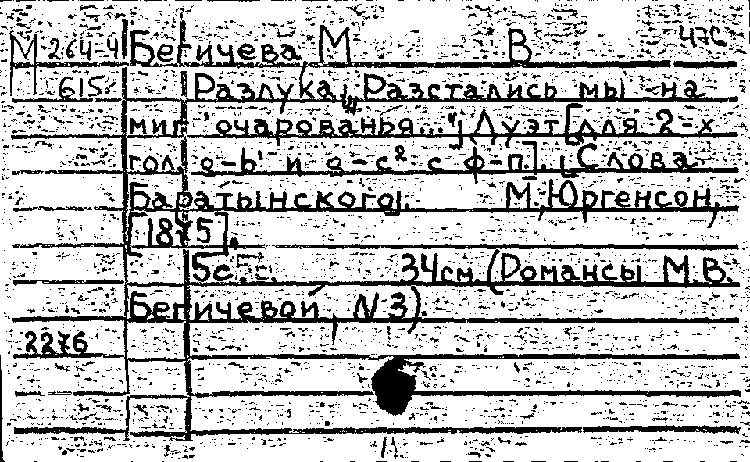 М 264-4 Бегичева М В 47с
615 Разлука. „Разстались мы на
миг очарованья..."; Дуэт [для 2-х
гол. и с ф-п.]. [Слова
Баратынского]. М., Юргенсон,
[1875].
5с. 34см. (Романсы М.В.
Бегичевой, N 3).
2276